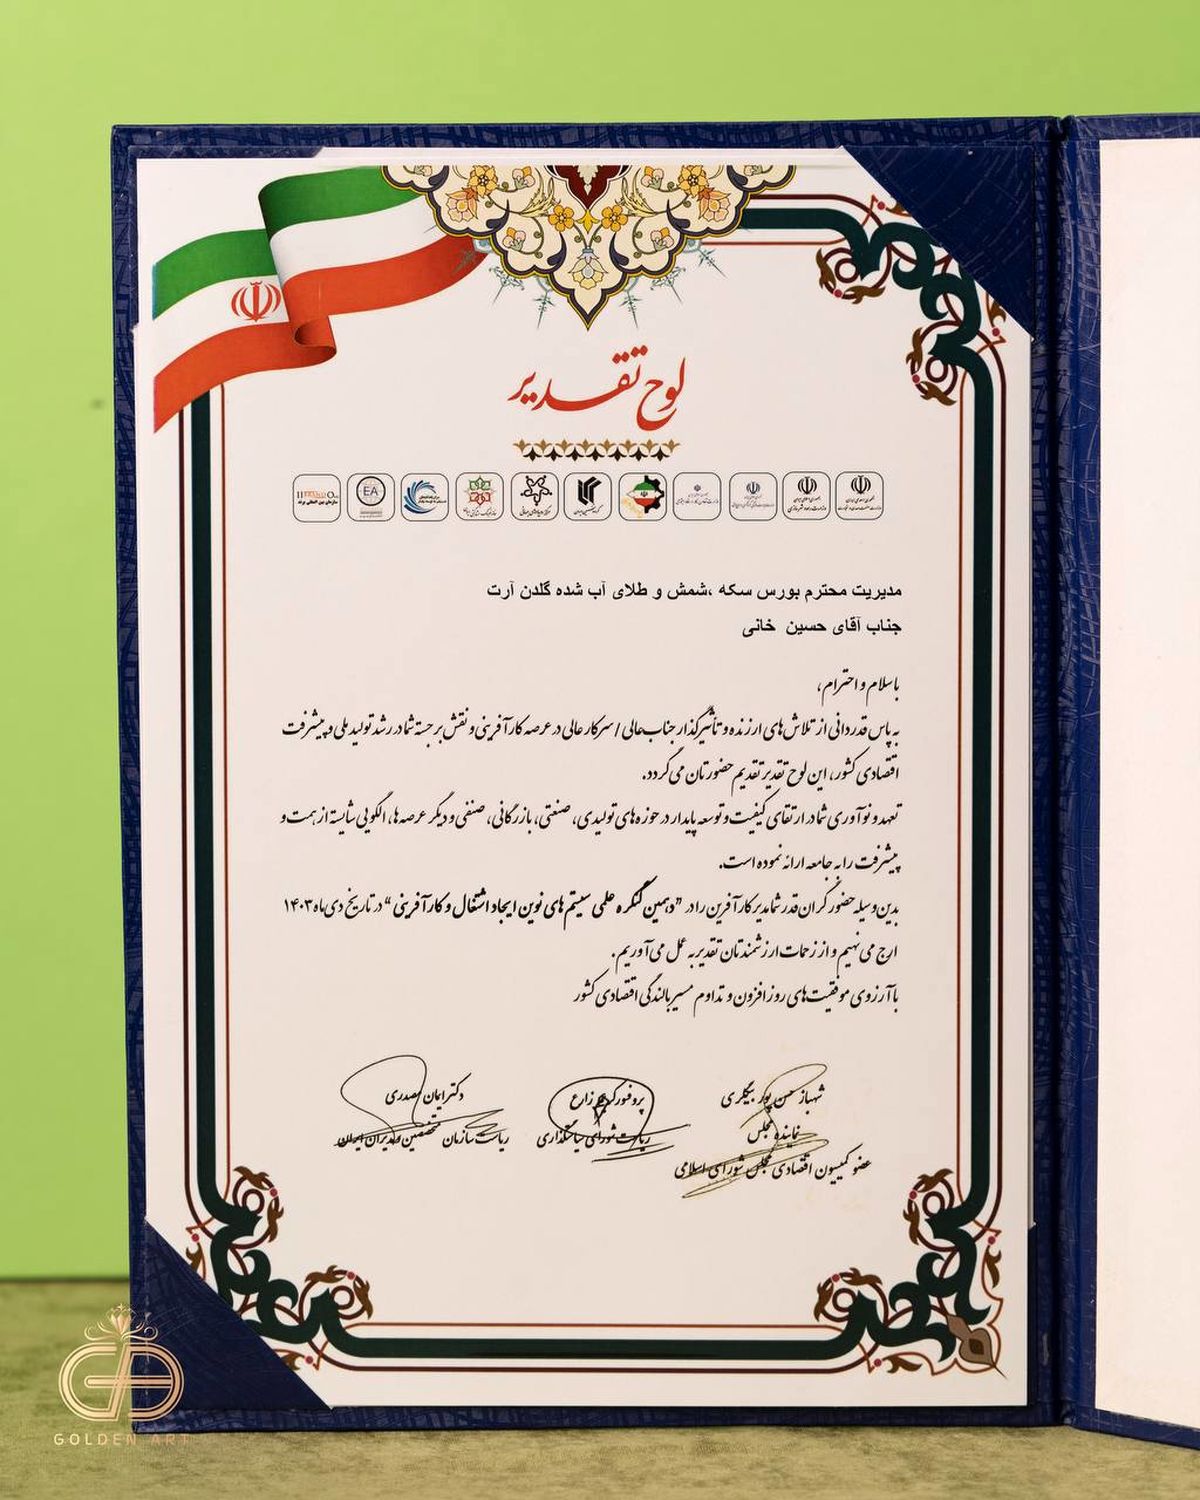 لوح تقدیر
EA
مدیریت محترم بورس سکه ،شمش و طلای آب شده گلدن آرت
جناب آقای حسین خانی
باسلام و احترام،
به پاس قدردانی از تلاش‌های ارزنده و تأثیرگذار جناب‌عالی / سرکار عالی در عرصه کارآفرینی و نقش برجسته شما در رشد تولید ملی و پیشرفت
اقتصادی کشور، این لوح تقدیر تقدیم حضورتان می‌گردد.
تعهد و نوآوری شما در ارتقای کیفیت و توسعه پایدار در حوزه‌های تولیدی، صنعتی، بازرگانی، صنفی و دیگر عرصه‌ها، الگویی شایسته از همت و
پیشرفت را به جامعه ارائه نموده است.
بدین وسیله حضور گران‌قدر شما مدیر کارآفرین را در "دهمین کنگره علمی سیستم های نوین ایجاد اشتغال و کارآفرینی" در تاریخ دی ماه ۱۴۰۳
ارج می‌نهیم و از زحمات ارزشمندتان تقدیر به عمل می‌آوریم.
با آرزوی موفقیت‌های روزافزون و تداوم مسیر بالندگی اقتصادی کشور
شهباز حسن پور بیگلری
نماینده مجلس
عضو کمیسیون اقتصادی مجلس شورای اسلامی
پروفسور زارع
ریاست شورای سیاستگذاری
دکتر ایمان صدری
ریاست سازمان متخصصین و مدیران ایران
GOLDEN ART